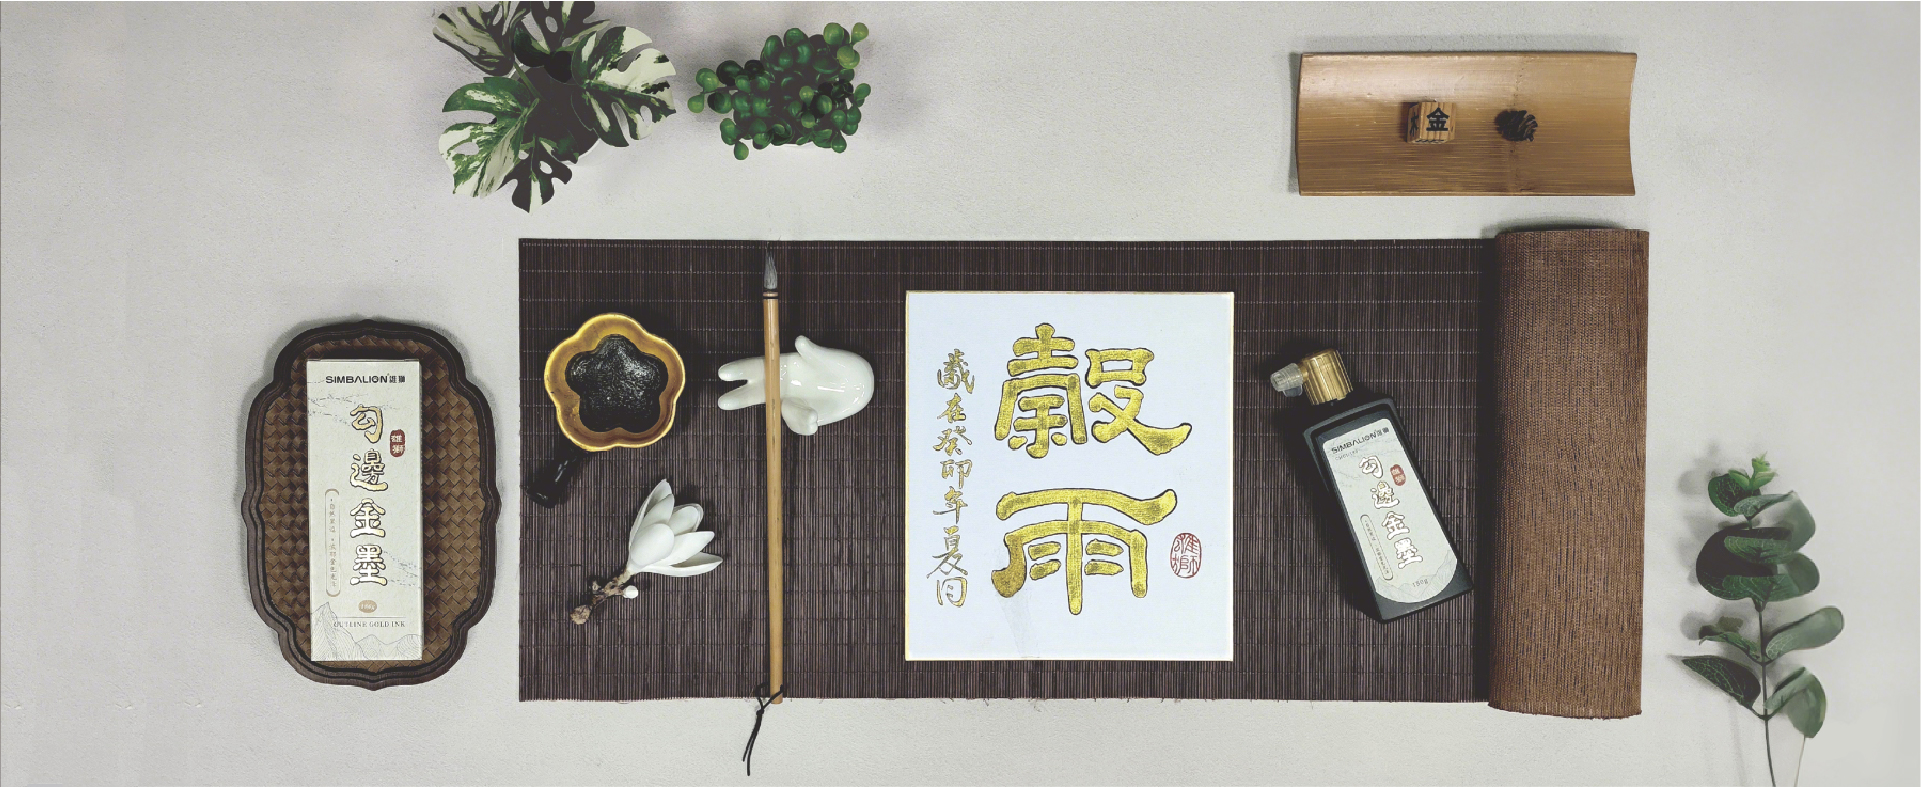 SIMBALION 雄獅
勾邊金墨
雄獅
180g
OUTLINE GOLD INK
穀雨
歲在癸卯年夏月
雄獅
金
SIMBALION 雄獅
勾邊金墨
180g